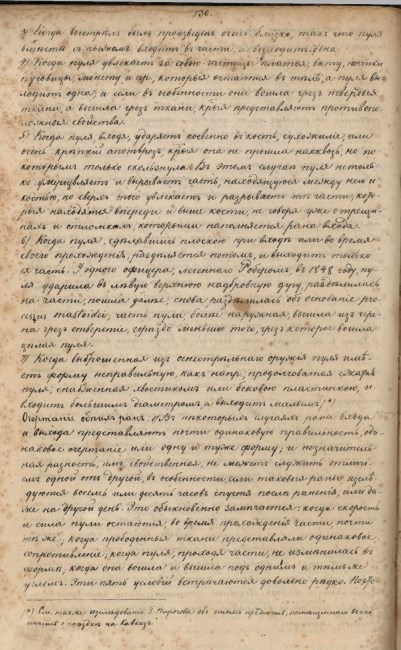 130.
3) Когда выстрелъ былъ произведенъ очень близко, такъ что пуля
вмѣстѣ съ пыжомъ входитъ въ части, а выходитъ одна.
4) Когда пуля увлекаетъ за собою частицы платья, вату,
пуговицы, монету и пр., которыя остаются въ тѣлѣ, а пуля вы-
ходитъ одна; и если въ особенности она вошла чрезъ твердыя
ткани, а вышла чрезъ ткани, кои представляютъ противопо-
ложныя свойства.
5) Когда пуля, входя, ударяетъ косвенно въ кость, сухожиліе, или
очень крѣпкій апоневрозъ, кои она не прошла насквозь, но по
которымъ только скользнула. Въ этомъ случаѣ пуля не толь-
ко умерщвляетъ и вырываетъ часть, находящуюся между нею и
костью, но сверхъ того увлекаетъ и разрываетъ тѣ части, кото-
рыя находятся впереди и выше кости, не говоря уже о трещи-
нахъ и отломкахъ, которыми наполняется рана входа.
6) Когда пуля, сдѣлавшись плоскою при входѣ или во время
своего прохожденія, раздѣляется потомъ, и выходитъ только
ея часть. У одного офицера, леченнаго Роберомъ, въ 1848 году, пу-
ля ударила въ лѣвую верхнюю надбровную дугу, раздѣлилась
на части, пошла далѣе, снова раздѣлилась объ основаніе pro-
cessus mastoidei, часть пули, болѣе наружная, вышла изъ чере-
па чрезъ отверстіе, гораздо меньшее того, чрезъ которое вошла
цѣлая пуля.
7) Когда выброшенная изъ огнестрѣльнаго оружія пуля имѣ-
етъ форму неправильную, какъ напр. продолговатая
пуля, снабженная хвостикомъ или боковою пластинкою, и
входитъ большимъ діаметромъ, а выходитъ малымъ. *)
Очертаніе ранъ. Въ нѣкоторыхъ случаяхъ рана входа
и выхода представляютъ почти одинаковую правильность, оди-
наковое очертаніе или одну и туже форму; и незначитель-
ная разность, имъ свойственная, не можетъ служить отличі-
емъ одной отъ другой, въ особенности, если таковыя раны изслѣ-
дуются восемь или десять часовъ спустя послѣ раненія, если да-
же на другой день. Это обыкновенно замѣчается: когда скорость
и сила пули остаются, во время прохожденія части, почти
тѣ же; когда прободенныя ткани представляли одинаковое
сопротивленіе; когда пуля, проходя части, не измѣнилась въ
формѣ; когда она вошла и вышла подъ однимъ и тѣмъ же
угломъ. Эти пять условій встрѣчаются довольно рѣдко.
*) См. также изслѣдованіе г. Пирогова объ этомъ предметѣ, помѣщенное въ его
отчетѣ о поѣздкѣ на Кавказъ.